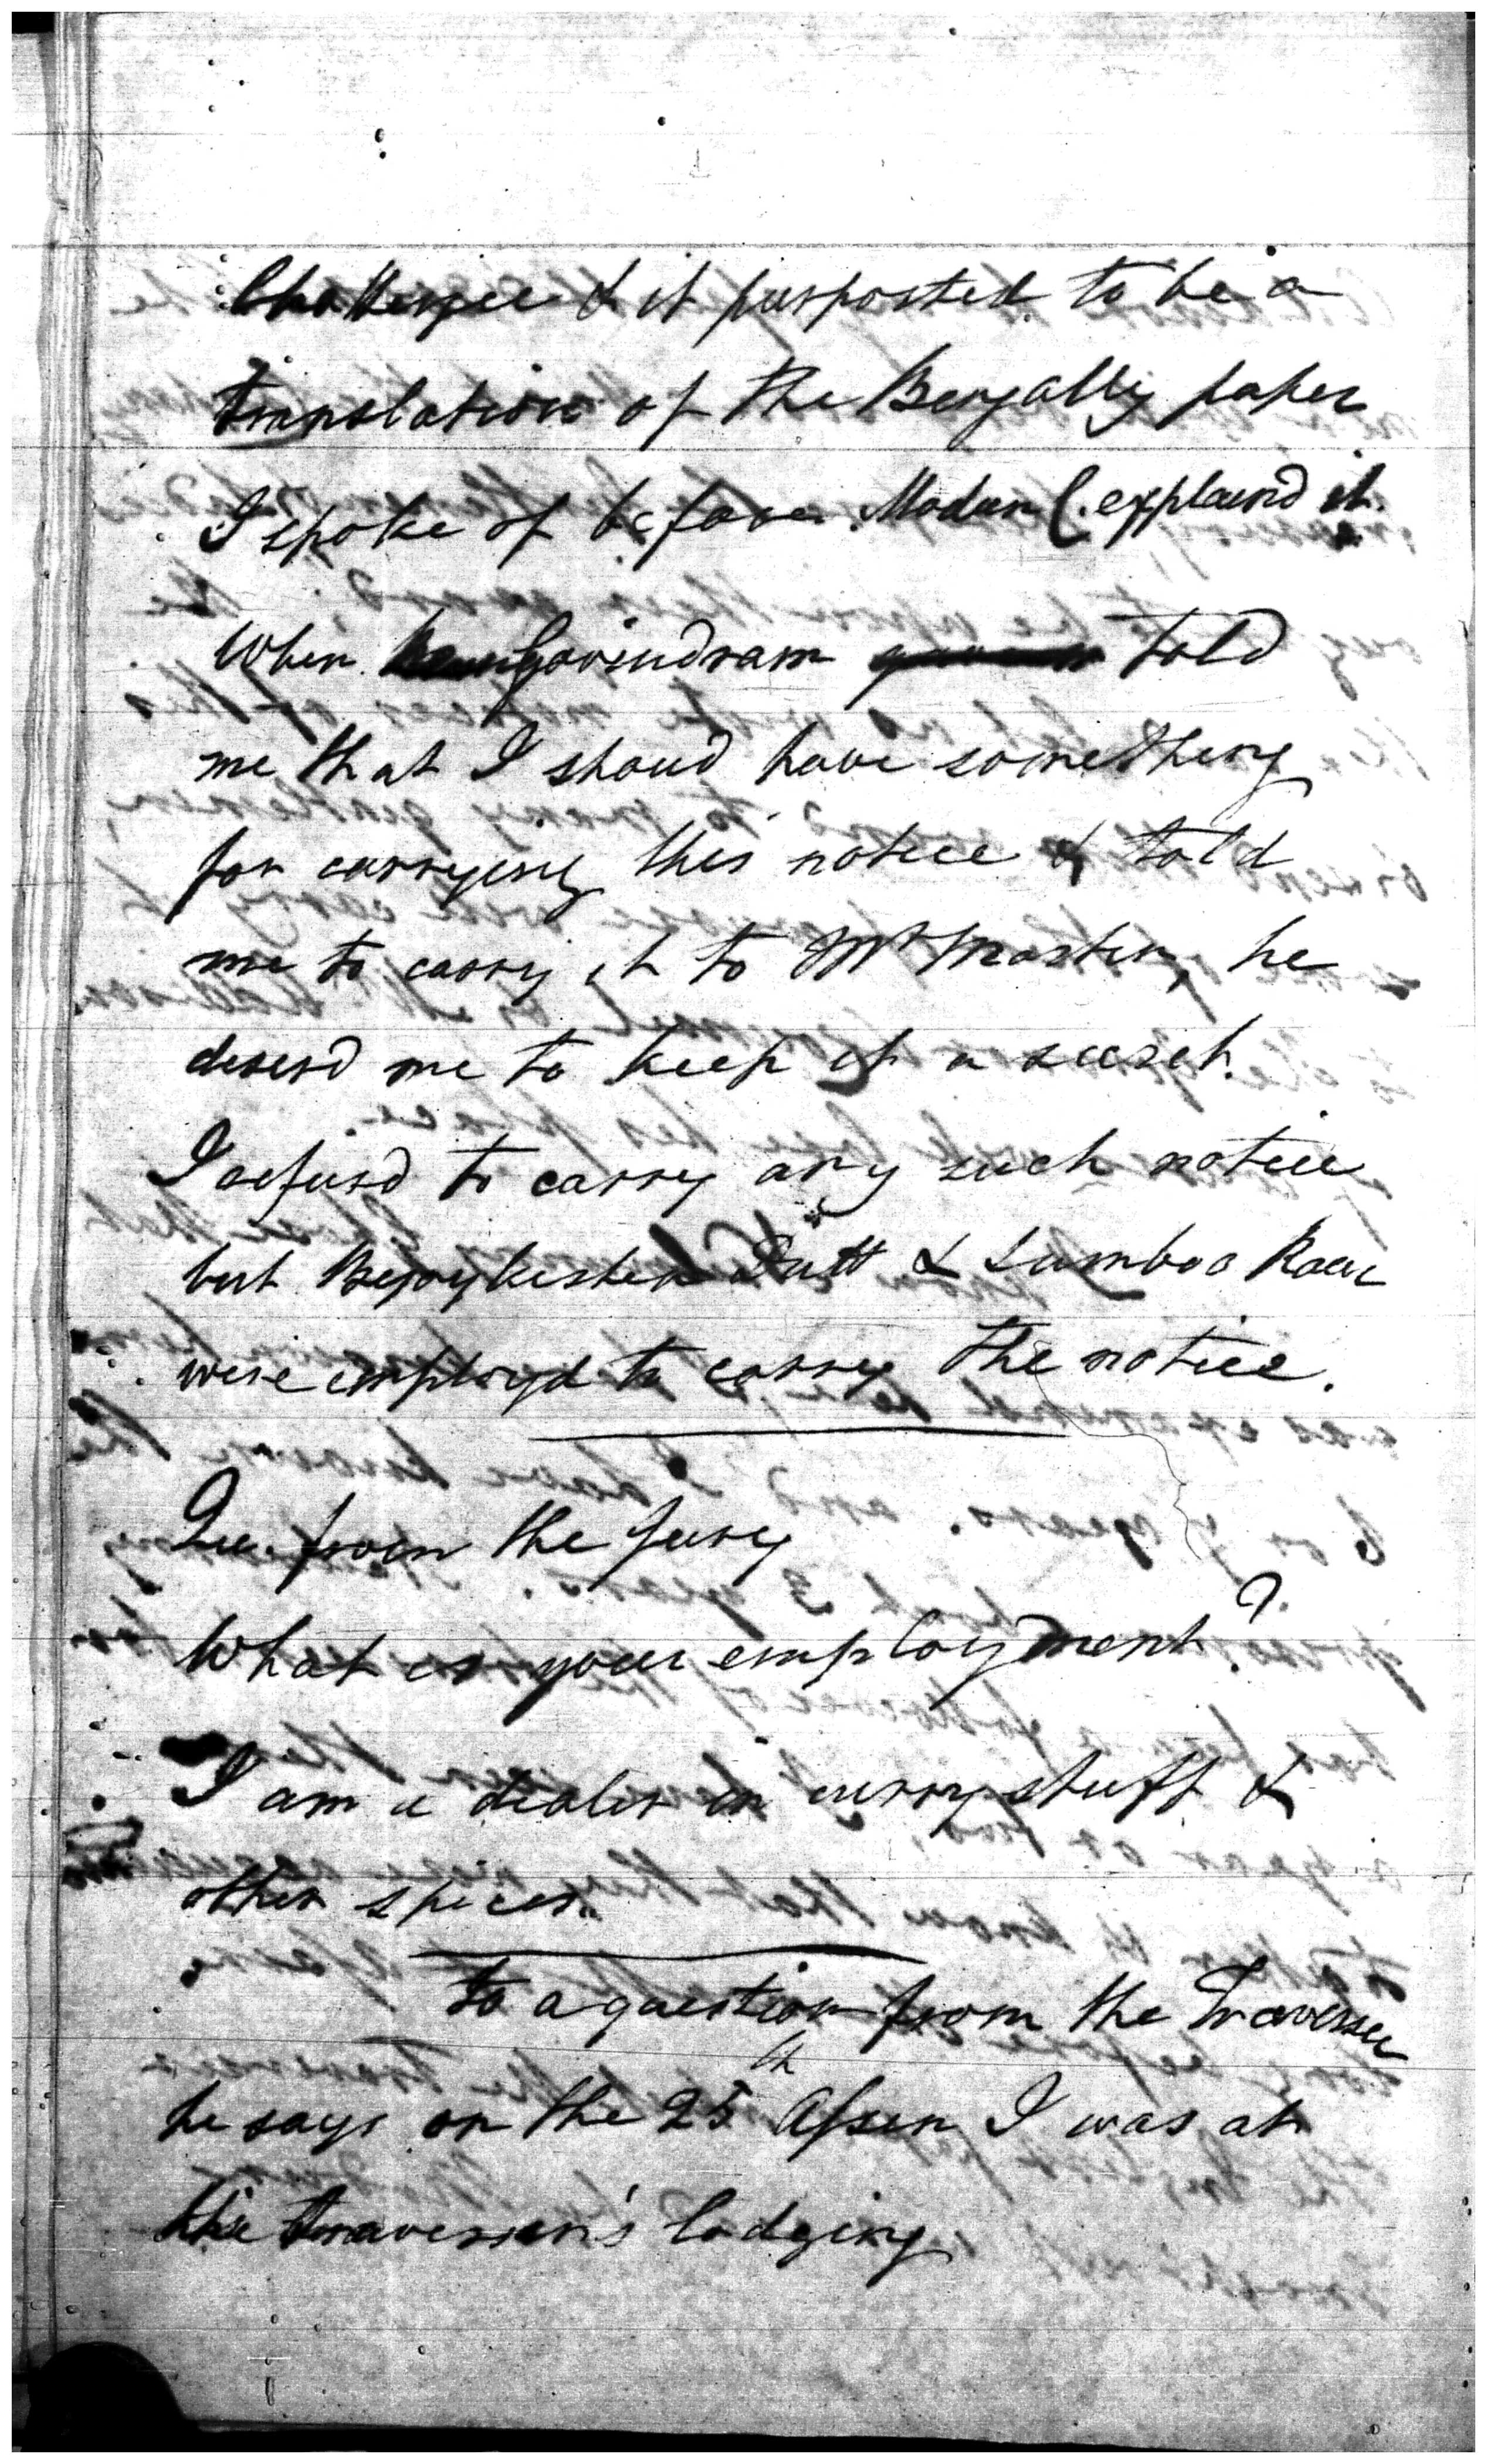 Chatterjee & it purported to be a
translation of the Bengally paper
I spoke of before. Modun C. explaind it.
When Govindram told
me that I shoud have something
for carrying this notice & told
me to carry it to Mr Master, he
desird me to keep it a secret.
I refusd to carry any such notice
but Bejoykisten Dutt & Sumboo Roy
were employd to carry the notice.
Qu. from the Jury
What is your employment?
I am a dealer in curry stuff &
other spices.
to a question from the Traverser
he says on the 25th Assin I was at
the traverser's lodging